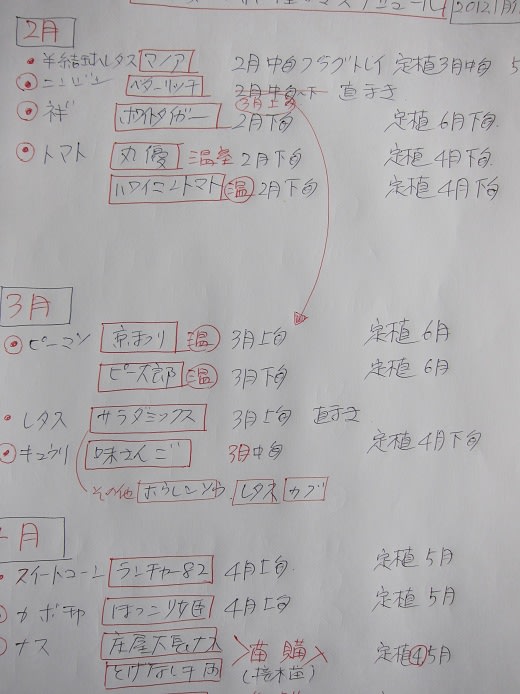 スケジュール 2012.1月
2月
・半結球レタス マノア 2月中旬フラグトレイ 定植3月中旬 5
・ニンジン ベターリッチ 2月中旬〜下 直まき
3月上旬
・ネギ ホワイトタイガー 2月下旬 定植6月下旬
・トマト 丸優 温室 2月下旬 定植4月下旬
ハワイニアントマト 温 2月下旬 定植4月下旬
3月
・ピーマン 京まつり 温 3月上旬 定植6月
ピー太郎 温 3月下旬 定植6月
・レタス サラダミックス 3月上旬 直まき
・キュウリ 味さんご 3月中旬 定植4月下旬
その他 ホウレンソウ レタス カブ
月
・スイートコーン ランチャー82 4月上旬 定植5月
カボチャ ほっこり姫 4月上旬 定植5月
ナス 庄屋大長ナス 苗購入 定植④5月
とげなし千両 (接木苗)